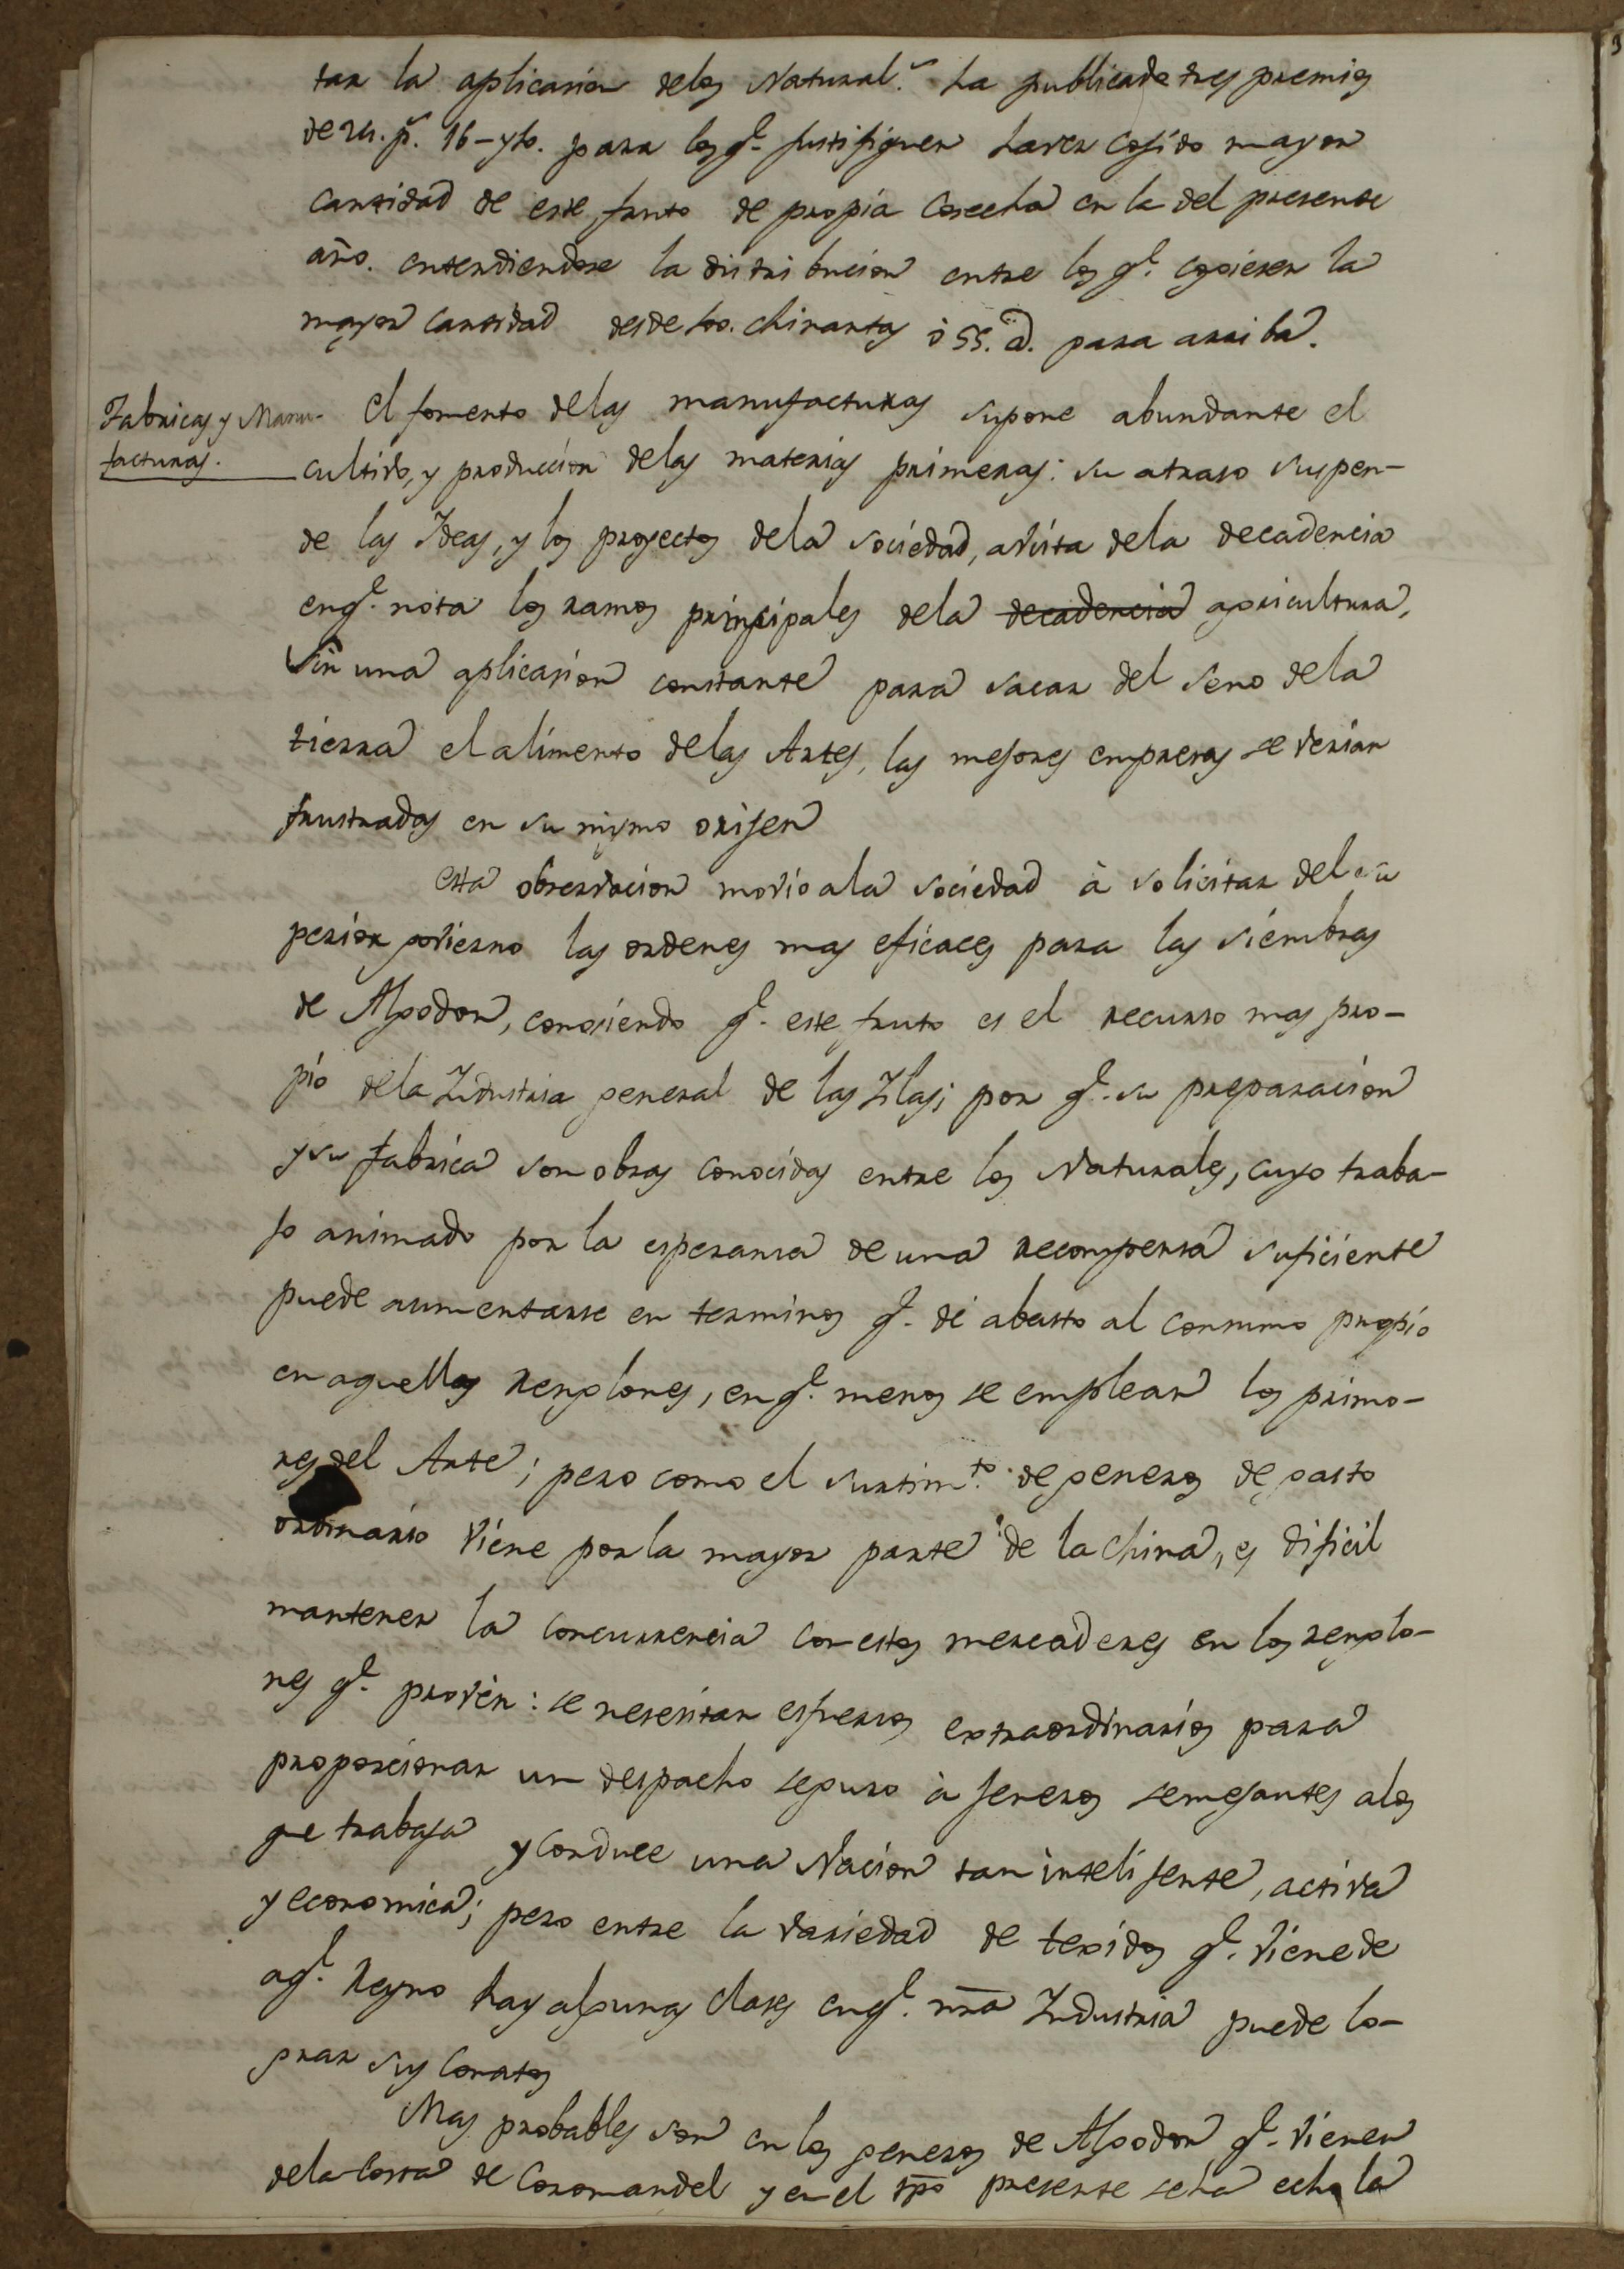 tar la aplicasion delos Natural.s ha publicado tres premios
de 24. p.s 16 - y 10. para los q.e justifiquen haver cojido mayor
cantidad de este fruto de propia cosecha en la del presente
año. entendiendose la distribucion entre los q.e cojiesen la
mayor cantidad desde 100. chinantas ó 55. @. para arriba.
Fabricas y Manu-
facturas.
El fomento delas manufacturas supone abundante el
cultivo, y produccion delas materias primeras: su atraso suspen-
de las Ydeas, y los proyectos dela sociedad, avista dela decadencia
enq.e nota los ramos principales dela decadencia agricultura,
Sin una aplicasion constante para sacar del seno dela
tierra el alimento delas Artes, las mejores empresas se verian
frustradas en su mismo orijen
esta observacion movio ala sociedad á solicitar del su
perior govierno las ordenes mas eficaces para las siembras
de Algodon, conosiendo q.e este fruto es el recurso mas pro-
pio dela Yndustria general de las Yslas; por q.e su preparacion
y su fabrica son obras conocidas entre los Naturales, cuyo traba-
jo animado por la esperansa de una recompensa suficiente
puede aumentarse en terminos q.e dé abasto al consumo propio
en aquellos renglones, enq.e menos se emplean los primo-
res del Arte; pero como el surtim.to de generos de gasto
ordinario viene por la mayor parte de la China, es dificil
mantener la concurrencia con estos mercaderes en los renglo-
nes q.e provén: se nesesitan esfuersos extraordinarios para
proporcionar un despacho seguro á jeneros semejantes alos
que trabaja y conduce una Nacion tan intelijente, activa
y economica; pero entre la variedad de texidos q.e viene de
aq.l Reyno hay algunas clases enq.e nra Yndustria puede lo-
grar sus conatos
Mas probables son en los generos de Algodon q.e vienen
dela costa de Coromandel y en el tpo presente seha echo la